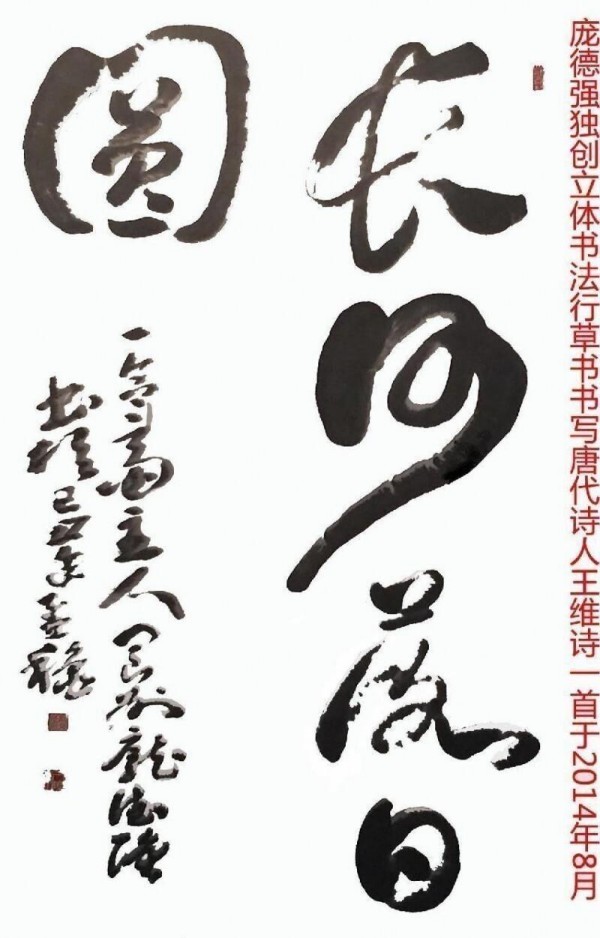 庞德强独创立体书法行草书书写唐代诗人王维诗一首于2014年8月
长河落日
圆
主人 龐德强
己丑年